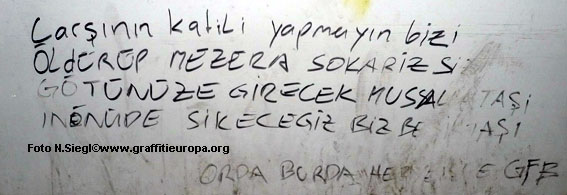 Çarşının katili yapmayın bizi
ÖLDÜRÜP MEZERA SOKARIZ
GÖTÜNÜZE GİRECEK
İNÖNÜDE SİKECEGİZ BİZ
Foto N.Siegl©www.graffitieuropa.org
ORDA BURDA GFB